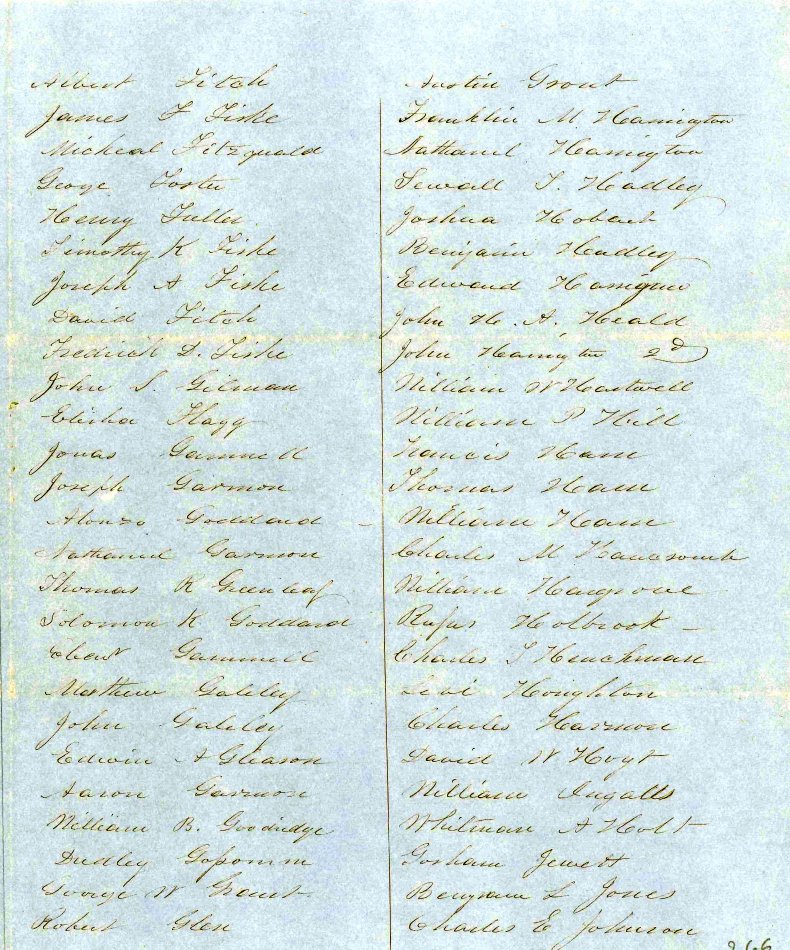 Albert Fitch
James F Fiske
Micheal Fitzgerald
George Foster
Henry Fuller.
Timothy K Fiske
Joseph A Fiske
David Fitch
Fredrick D. Fiske
John S. Gilman
Elisha Flagg
Jonas Gammell
Joseph Garmon
Alonzo Goddard
Nathaniel Garmon
Thomas R Greenleaf
Solomon K Goddard
Gammell
Matthew Galeley
John Galeley
Edwin A Gleason
Aaron Garmon
William B. Goodridge
Dudley
George W Grant
Robert Glen
Austin Grout
Franklin M Harrington
Nathaniel Harrington
Sewall T. Hadley
Joshua Hobart
Benjamin Hadley
Edward
John H. A. Heald
John Harrington 2d
William W Hartwell
William P Hill
Francis Ham
Thomas Ham
William Ham
Charles M
William Hargrove
Rufus Holbrook
Charles T Henchman
Levi Houghton
Charles Harmon
David W Hoyt
William Ingalls
Whitman A Holt
Gorham Jewett
Benjamin L Jones
Charles E Johnson